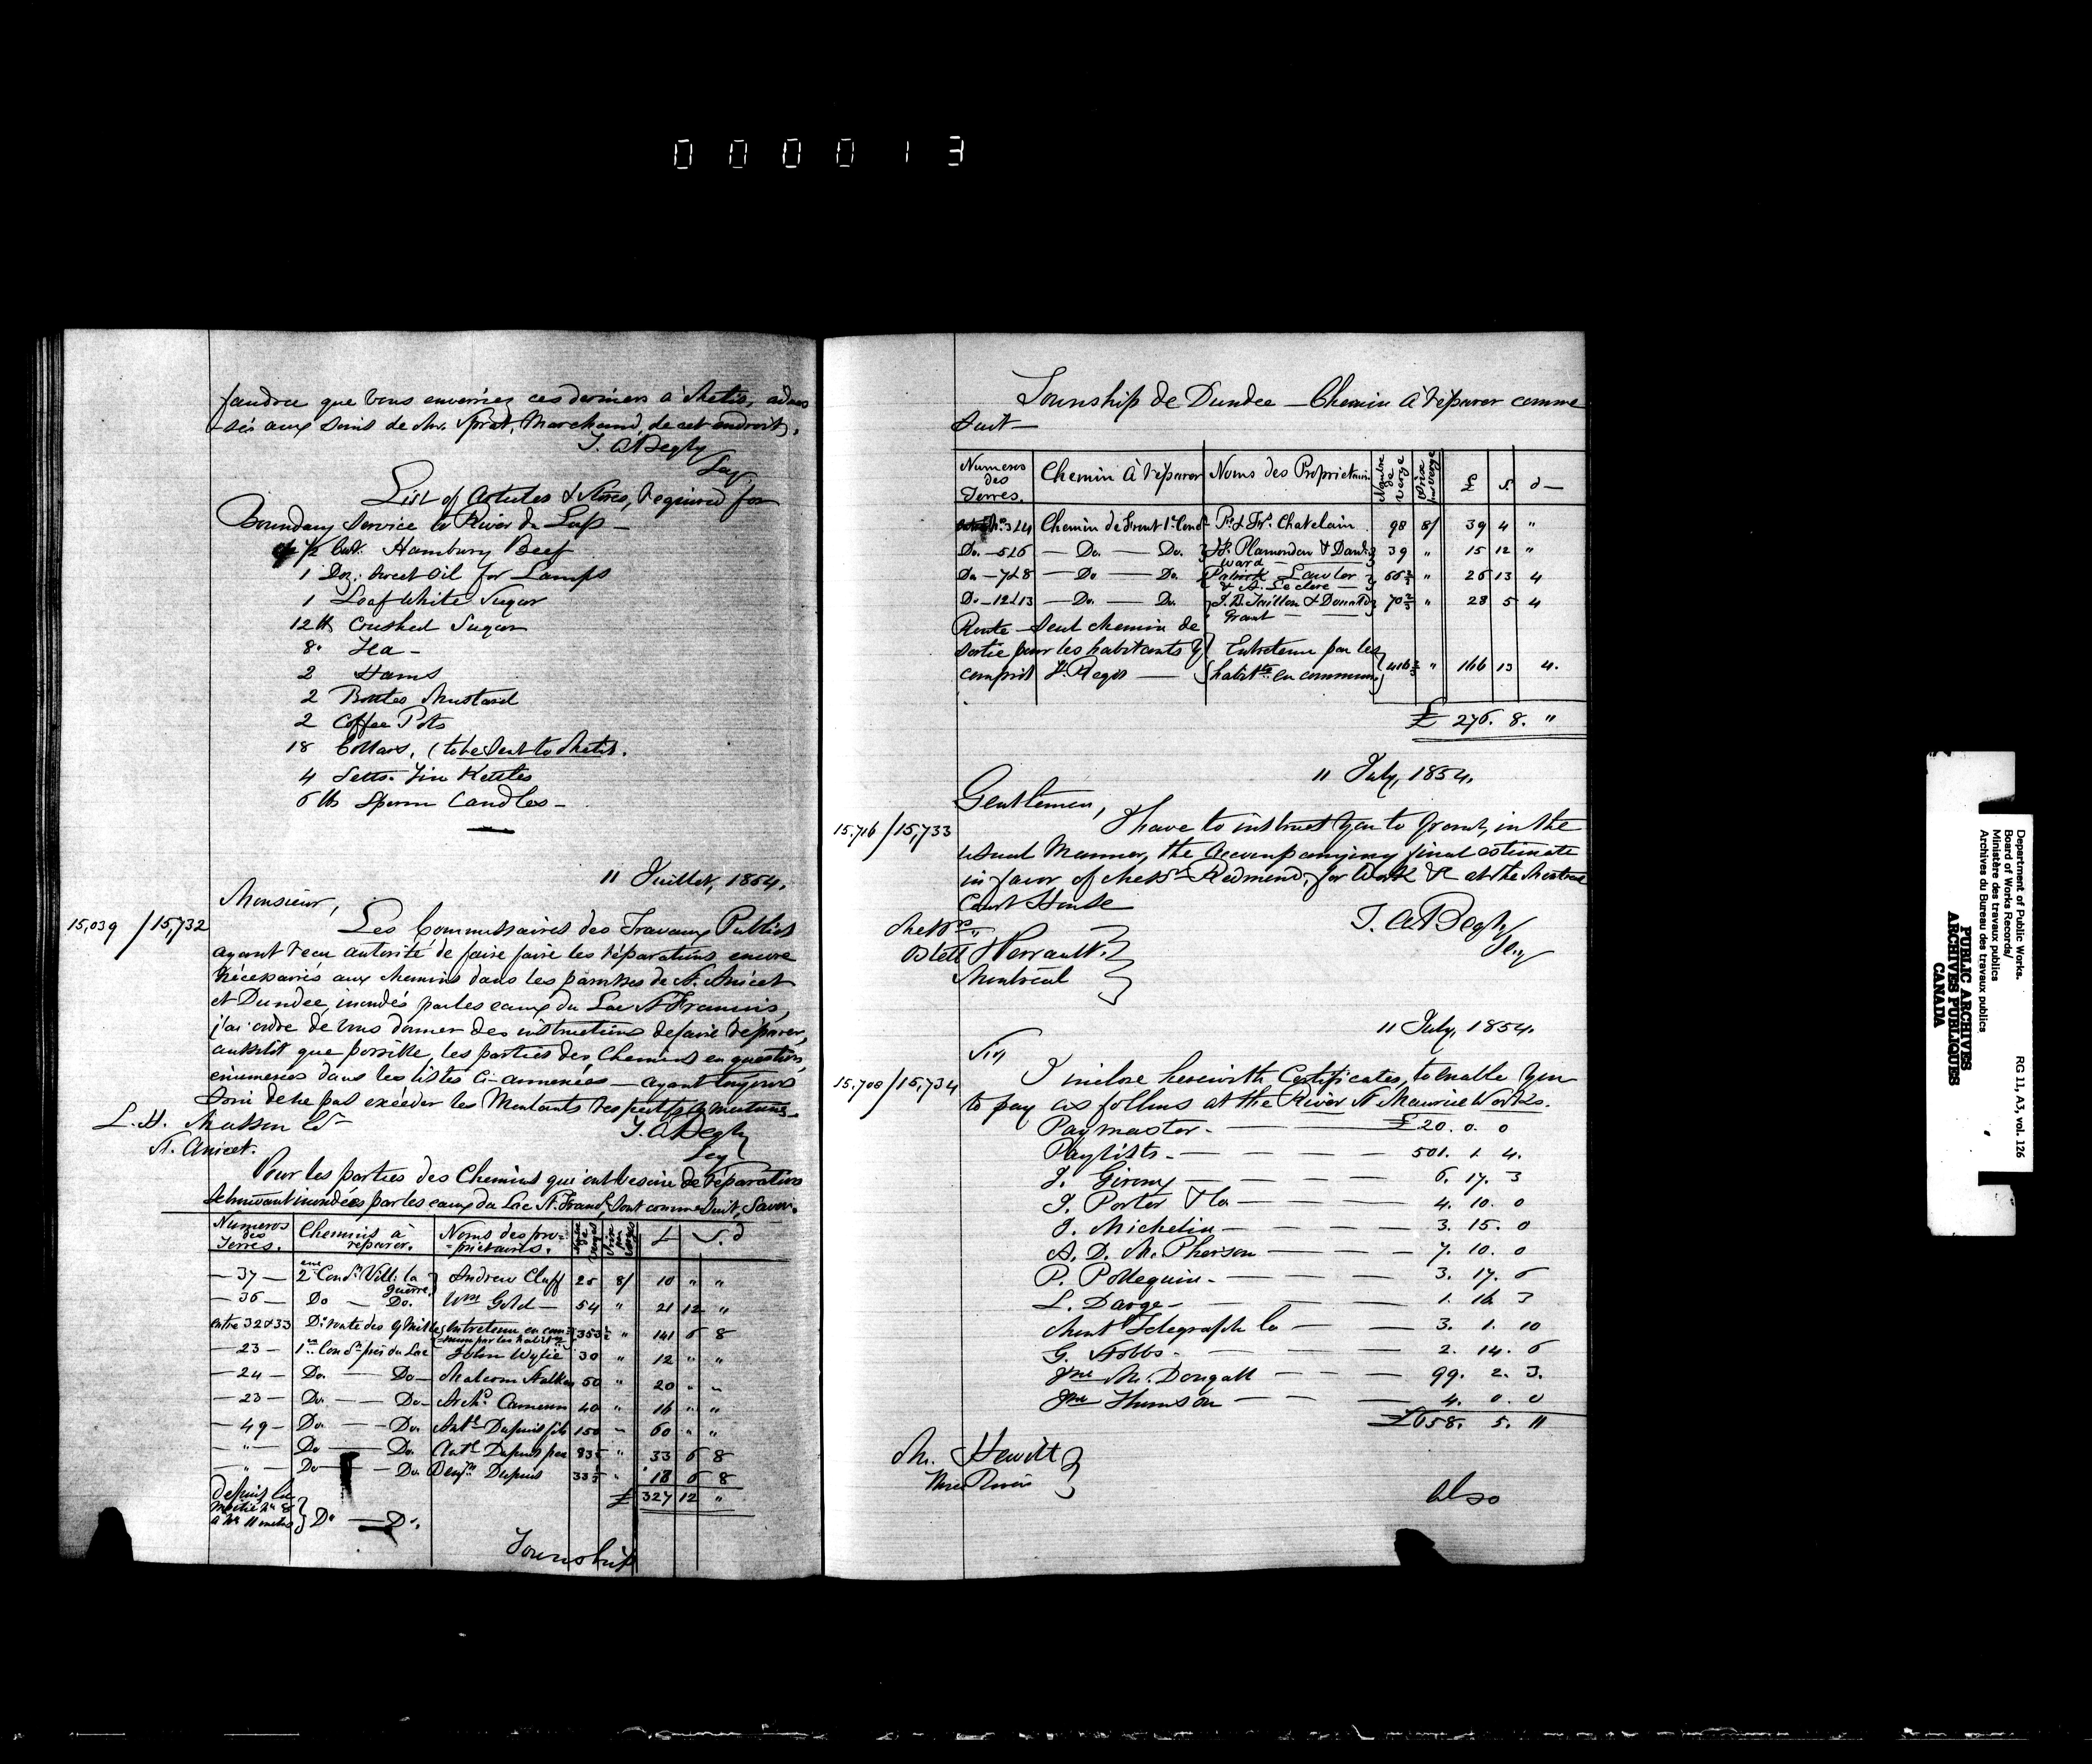 000013
faudra que vous envoiriez ces derniers à Metis, adres
-sés aux soins de Mr. Sprat, Marchand, de cet endroit.
T. A. Begly
Secy
List of Articles & Stores, Required for
Boundary Service to River du Loup -
1/2 Brl. Hamburg Beef
1 Doz. Sweet Oil for Lamps
1 Loaf White Sugar
12 lbs Crushed Sugar
8 " Tea -
2 Hams
2 Bottles Mustard
2 Coffee Pots
18 Collars, (to be sent to Metis.
4 Setts. Tin Kettles
6 lbs Sperm Candles -
11 Juillet, 1854.
Monsieur,
15,039 / 15,732
Les Commissaires des Travaux Publics
ayant reçu autorité de faire faire les réparations encore
nécessaires aux chemins dans les paroisses de St. Anicet
et Dundee, inondés par les eaux du Lac St Francis,
j'ai ordre de vous donner des instructions de faire réparer,
aussitôt que possible, les parties des Chemins en question,
énumérés dans les listes ci-annexées — ayant toujours
soin de ne pas excéder les Montants respectifs y mentionés.
L. H. Masson Er
T. A. Begly
Secy
St. Anicet.
Pour les parties des Chemins qui ont besoin de réparations
et inondées par les eaux du Lac St. Frans, sont comme suit, Savoir.
Numeros des Terres. Chemins à réparer. Noms des pro-prietaires. Nombre de Verges Prix par Verge £ S. d
— 37 — 2eme Conn. Vill: la Guerre. Andrew Cluff 25 8/ 10 " "
— 36 — Do — Do. Wm Gold — 54 " 21 12 "
entre 32 & 33 Do route des 9 Mille Entretenu en com-mun par les habits 353 1/3 " 141 6 8
— 23 — 1ere Conn près du Lac John Wylie 30 " 12 " "
— 24 — Do. — Do — Malcom Stalker 50 " 20 " "
— 23 — Do. — Do — Archd. Cameron 40 " 16 " "
— 49 — Do. — Do. Ante Dupuis fils 150 " 60 " "
— " — Do — Do. Ante Dupuis pere 83 1/3 " 33 6 8
— " — Do — Do. Benjn Dupuis 33 1/3 " 13 6 8
£ 327 12 "
depuis la
moitié No 8
à No 11 inclus } Do — Do.
Township
Township de Dundee — Chemin à réparer comme
Suit —
Numeros des Terres. Chemin à réparer Noms des Proprietaires Nombre de verge Prix par verge £ S. d —
No. 3 & 4 Chemin de Front 1e Cond Pr. & Frs. Chatelain 98 8/ 39 4 "
Do. — 5 & 6 — Do. — Do. Js. Plamondon & David Ward — 39 " 15 12 "
Do — 7 & 8 — Do — Do. Patrick Lawler & A. Leclere — 66 2/3 " 26 13 4
Do — 12 & 13 — Do. — Do. J. B. Taillon & Donald Grant — 70 2/3 " 28 5 4
Route — Seul chemin de
sortie pour les habitants y
compris St. Regis — Entretenu par les habitts en commun 416 2/3 " 166 13 4.
£ 276. 8. "
11 July, 1854.
Gentlemen,
15.716 / 15,733
I have to instruct you to grant, in the
usual Manner, the Accompanying final estimate
in favor of Messrs Redmond, for Work &c at the Montreal
Court House
T. A. Begly
Secy
Messrs
Ostell & Perrault.
Montreal
11 July, 1854.
Sir,
15.708 / 15,734
I inclose herewith Certificates, to enable you
to pay as follows at the River St Maurice Works.
Paymaster. — £ 20. 0. 0
Paylists. — 501. 1. 4.
J. Girony — 6. 17. 3
J. Porter & Co — 4. 10. 0
J. Michelin — 3. 15. 0
A. D. McPherson — 7. 10. 0
P. Pollequin. — 3. 17. 6
L. Darge — 1. 16. 3
Mont Telegraph Co — 3. 1. 10
G. Stobbs. — 2. 14. 6
Jno McDougall — 99. 2. 3.
Jno Thomson — 4. 0. 0
£658. 5. 11
Mr. Hewitt
Three Rivers
Also
Department of Public Works. RG 11, A3, vol. 126
Board of Works Records/
Ministère des travaux publics
Archives du Bureau des travaux publics
PUBLIC ARCHIVES
ARCHIVES PUBLIQUES
CANADA